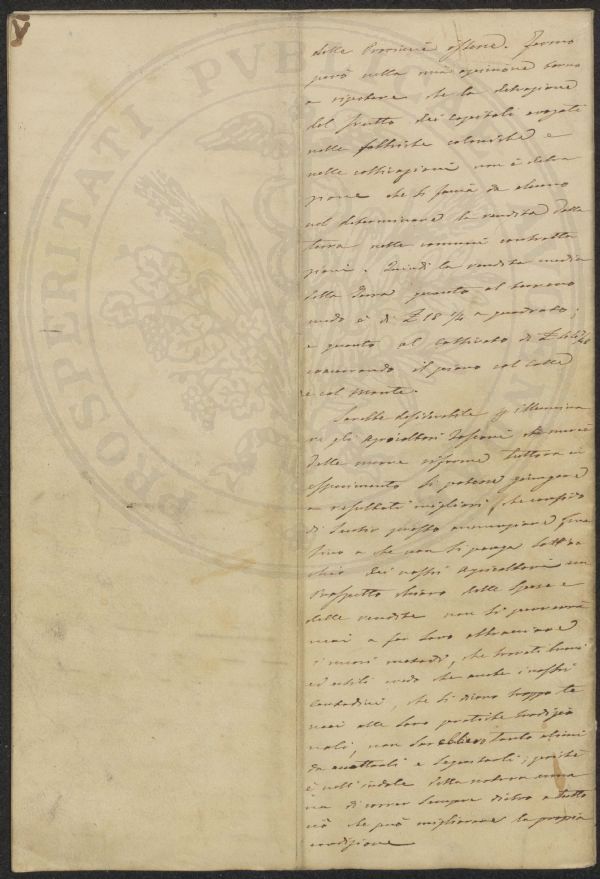 PROSPERITATI PVBLICAE
delle Provincie. Fermo
però nella mia opinione torno
a ripetere che la detrazione
del frutto dei capitali erogati
nelle fabbriche coloniche e
nelle coltivazioni non è detra
zione che si faccia da alcuno
nel determinare la rendita della
terra nelle comuni contratta
zioni. Quindi la rendita media
della terra quanto al terreno
nudo è di £ 18 1/4 a quadrato;
e quanto al coltivato di £
il piano col Colle
e col Monte.
Sarebbe desiderabile p illumina
re gli Agricoltori Toscani
delle nuove riforme tuttora in
esperimento si potesse giungere
a resultati migliori, che confido
di sentir presto
tino a che non si ponga sott'oc
chio dei nostri Agricoltori un
Prospetto chiaro delle spese e
delle rendite non si perverrà
mai a far loro abbracciare
i nuovi metodi, che trovati buoni
ed utili credo che anche i nostri
contadini, che si dicono troppo te
naci alle loro pratiche tradizio
nali, non sarebbero tanto alieni
da adottarli e seguitarli; poichè
è nell'indole della natura uma
na di correr sempre dietro a tutto
ciò che può migliorare la propria
condizione